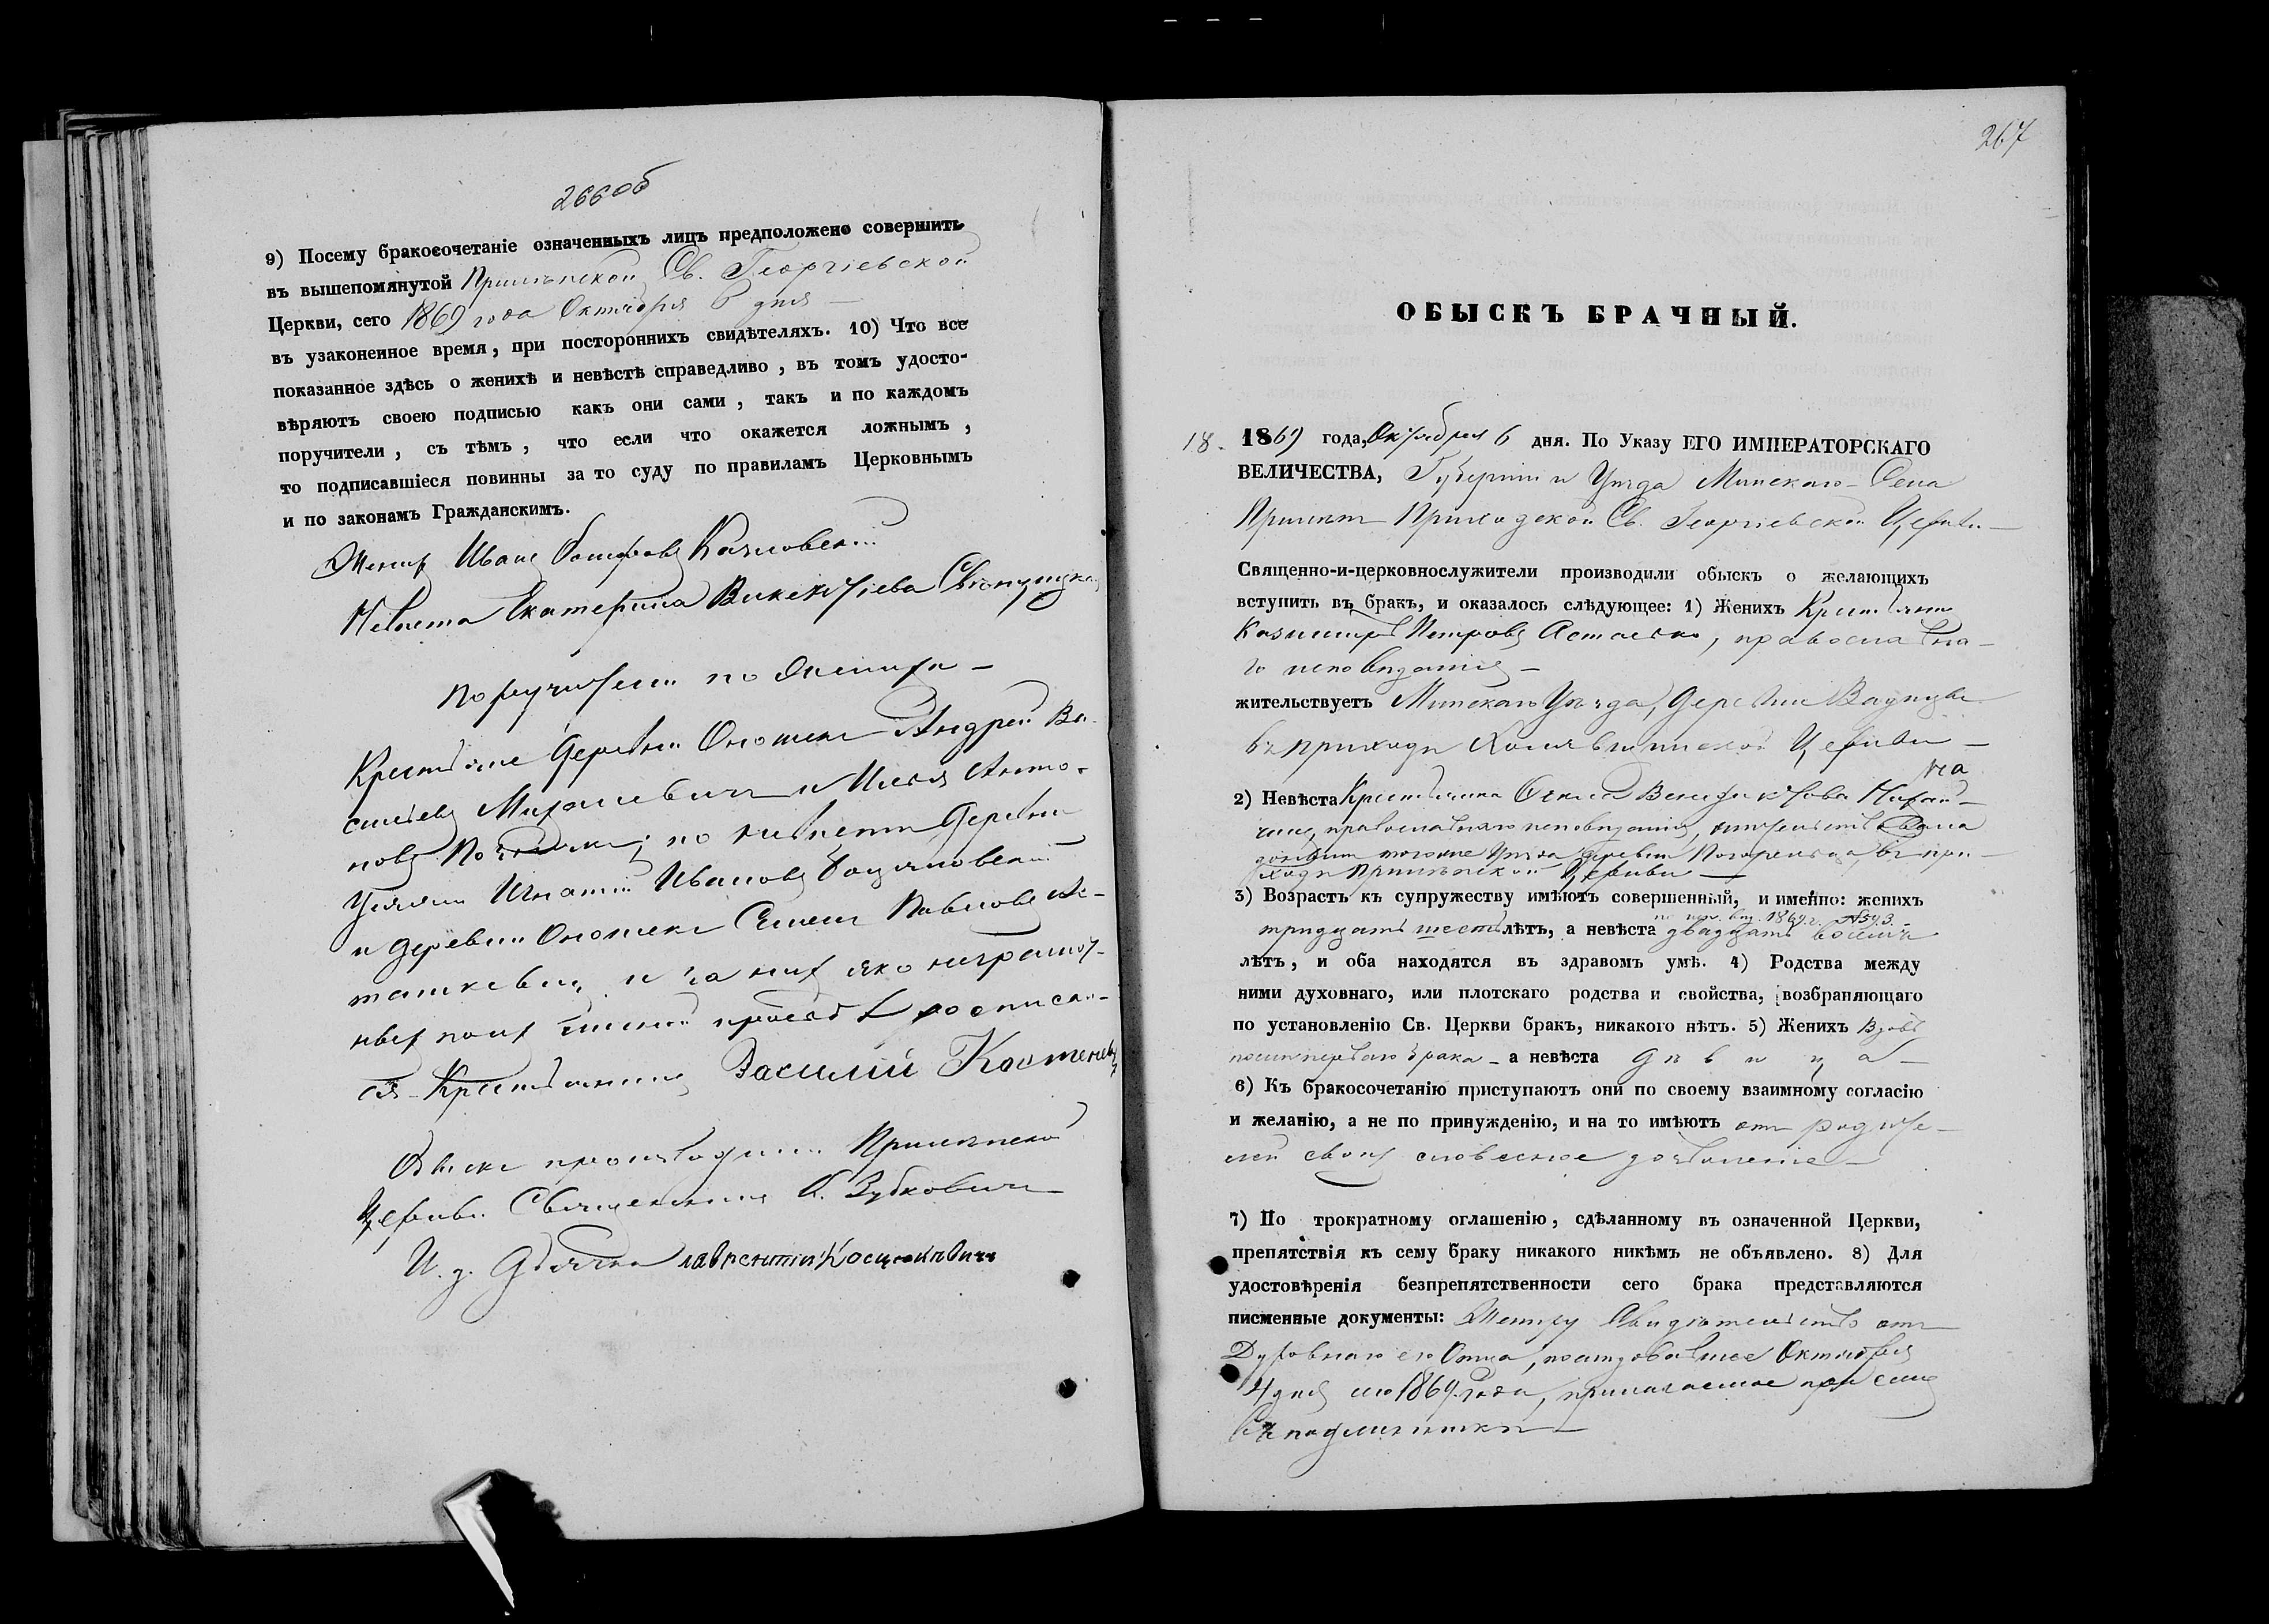 266об
9) Посему бракосочетаніе означенныхъ лицъ предположено совершить
въ вышепомянутой Прилѣпской Св. Георгіевской
Церкви, сего 1869 года Октября 6 дня —
въ узаконенное время, при постороннихъ свидѣтеляхъ. 10) Что все
показанное здѣсь о женихѣ и невѣстѣ справедливо, въ томъ удосто-
вѣряютъ своею подписью какъ они сами, такъ и по каждомъ
поручители, съ тѣмъ, что если что окажется ложнымъ,
то подписавшіеся повинны за то суду по правиламъ Церковнымъ
и по законамъ Гражданскимъ.
Женихъ Иванъ
Невѣста Екатерина Викентіева
Поручители по женихѣ —
Крестьяне деревни Оношекъ Андрей Ва-
сильевъ Михалевичъ и Илья Анто-
новъ по невѣстѣ деревни
Игнатій Ивановъ
и деревни Оношекъ Семенъ Павловъ
и за нихъ яко неграмот-
ныхъ по ихъ личной просьбѣ росписал-
ся Крестьянинъ Василій Костеневъ
Обыскъ производили Прилѣпской
Церкви Священникъ Зубковичъ
И. д. Дьячка Лаврентій
267
ОБЫСКЪ БРАЧНЫЙ.
18. 1869 года, Октября 6 дня. По Указу ЕГО ИМПЕРАТОРСКАГО
ВЕЛИЧЕСТВА, Губерніи и Уѣзда Минскаго Села
Прилѣпъ Приходской Св. Георгіевской Церкви —
Священно-и-церковнослужители производили обыскъ о желающихъ
вступить въ бракъ, и оказалось слѣдующее: 1) Женихъ Крестьянинъ
Казимиръ Петровъ, православна-
го исповѣданія —
жительствуетъ Минскаго Уѣзда, деревни
въ приходѣ Церкви —
2) Невѣста Крестьянка Венедиктова
православнаго исповѣданія, жительствовала
того же Уѣзда деревни въ при-
ходѣ Прилѣпской Церкви —
3) Возрастъ къ супружеству имѣютъ совершенный, и именно: женихъ
тридцать шесть лѣтъ, а невѣста двадцать восемь
лѣтъ, и оба находятся въ здравомъ умѣ. 4) Родства между
ними духовнаго, или плотскаго родства и свойства, возбраняющаго
по установленію Св. Церкви бракъ, никакого нѣтъ. 5) Женихъ Вдовъ
послѣ перваго брака — а невѣста дѣвица —
6) Къ бракосочетанію приступаютъ они по своему взаимному согласію
и желанію, а не по принужденію, и на то имѣютъ отъ родите-
лей своихъ словесное дозволеніе —
7) По трократному оглашенію, сдѣланному въ означенной Церкви,
препятствія къ сему браку никакого никѣмъ не объявлено. 8) Для
удостовѣренія безпрепятственности сего брака представляются
писменные документы: Жениху Свидѣтельство отъ
Духовнаго его Отца, послѣдовавшее Октября
4 дня сего 1869 года, прилагаемое при семъ
въ подлинникѣ —